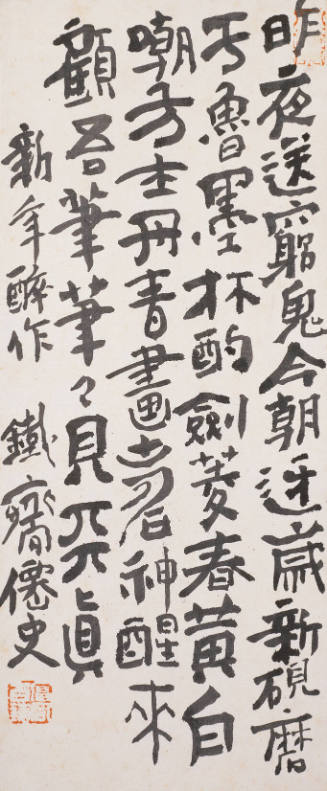 昨夜送窮鬼今朝迓歳新硯磨
于魯墨杯酌劍菱春黄白
嘲方士丹青畫神醒來
顧吾筆筆々見天眞
新年醉作 鐵齋僊史